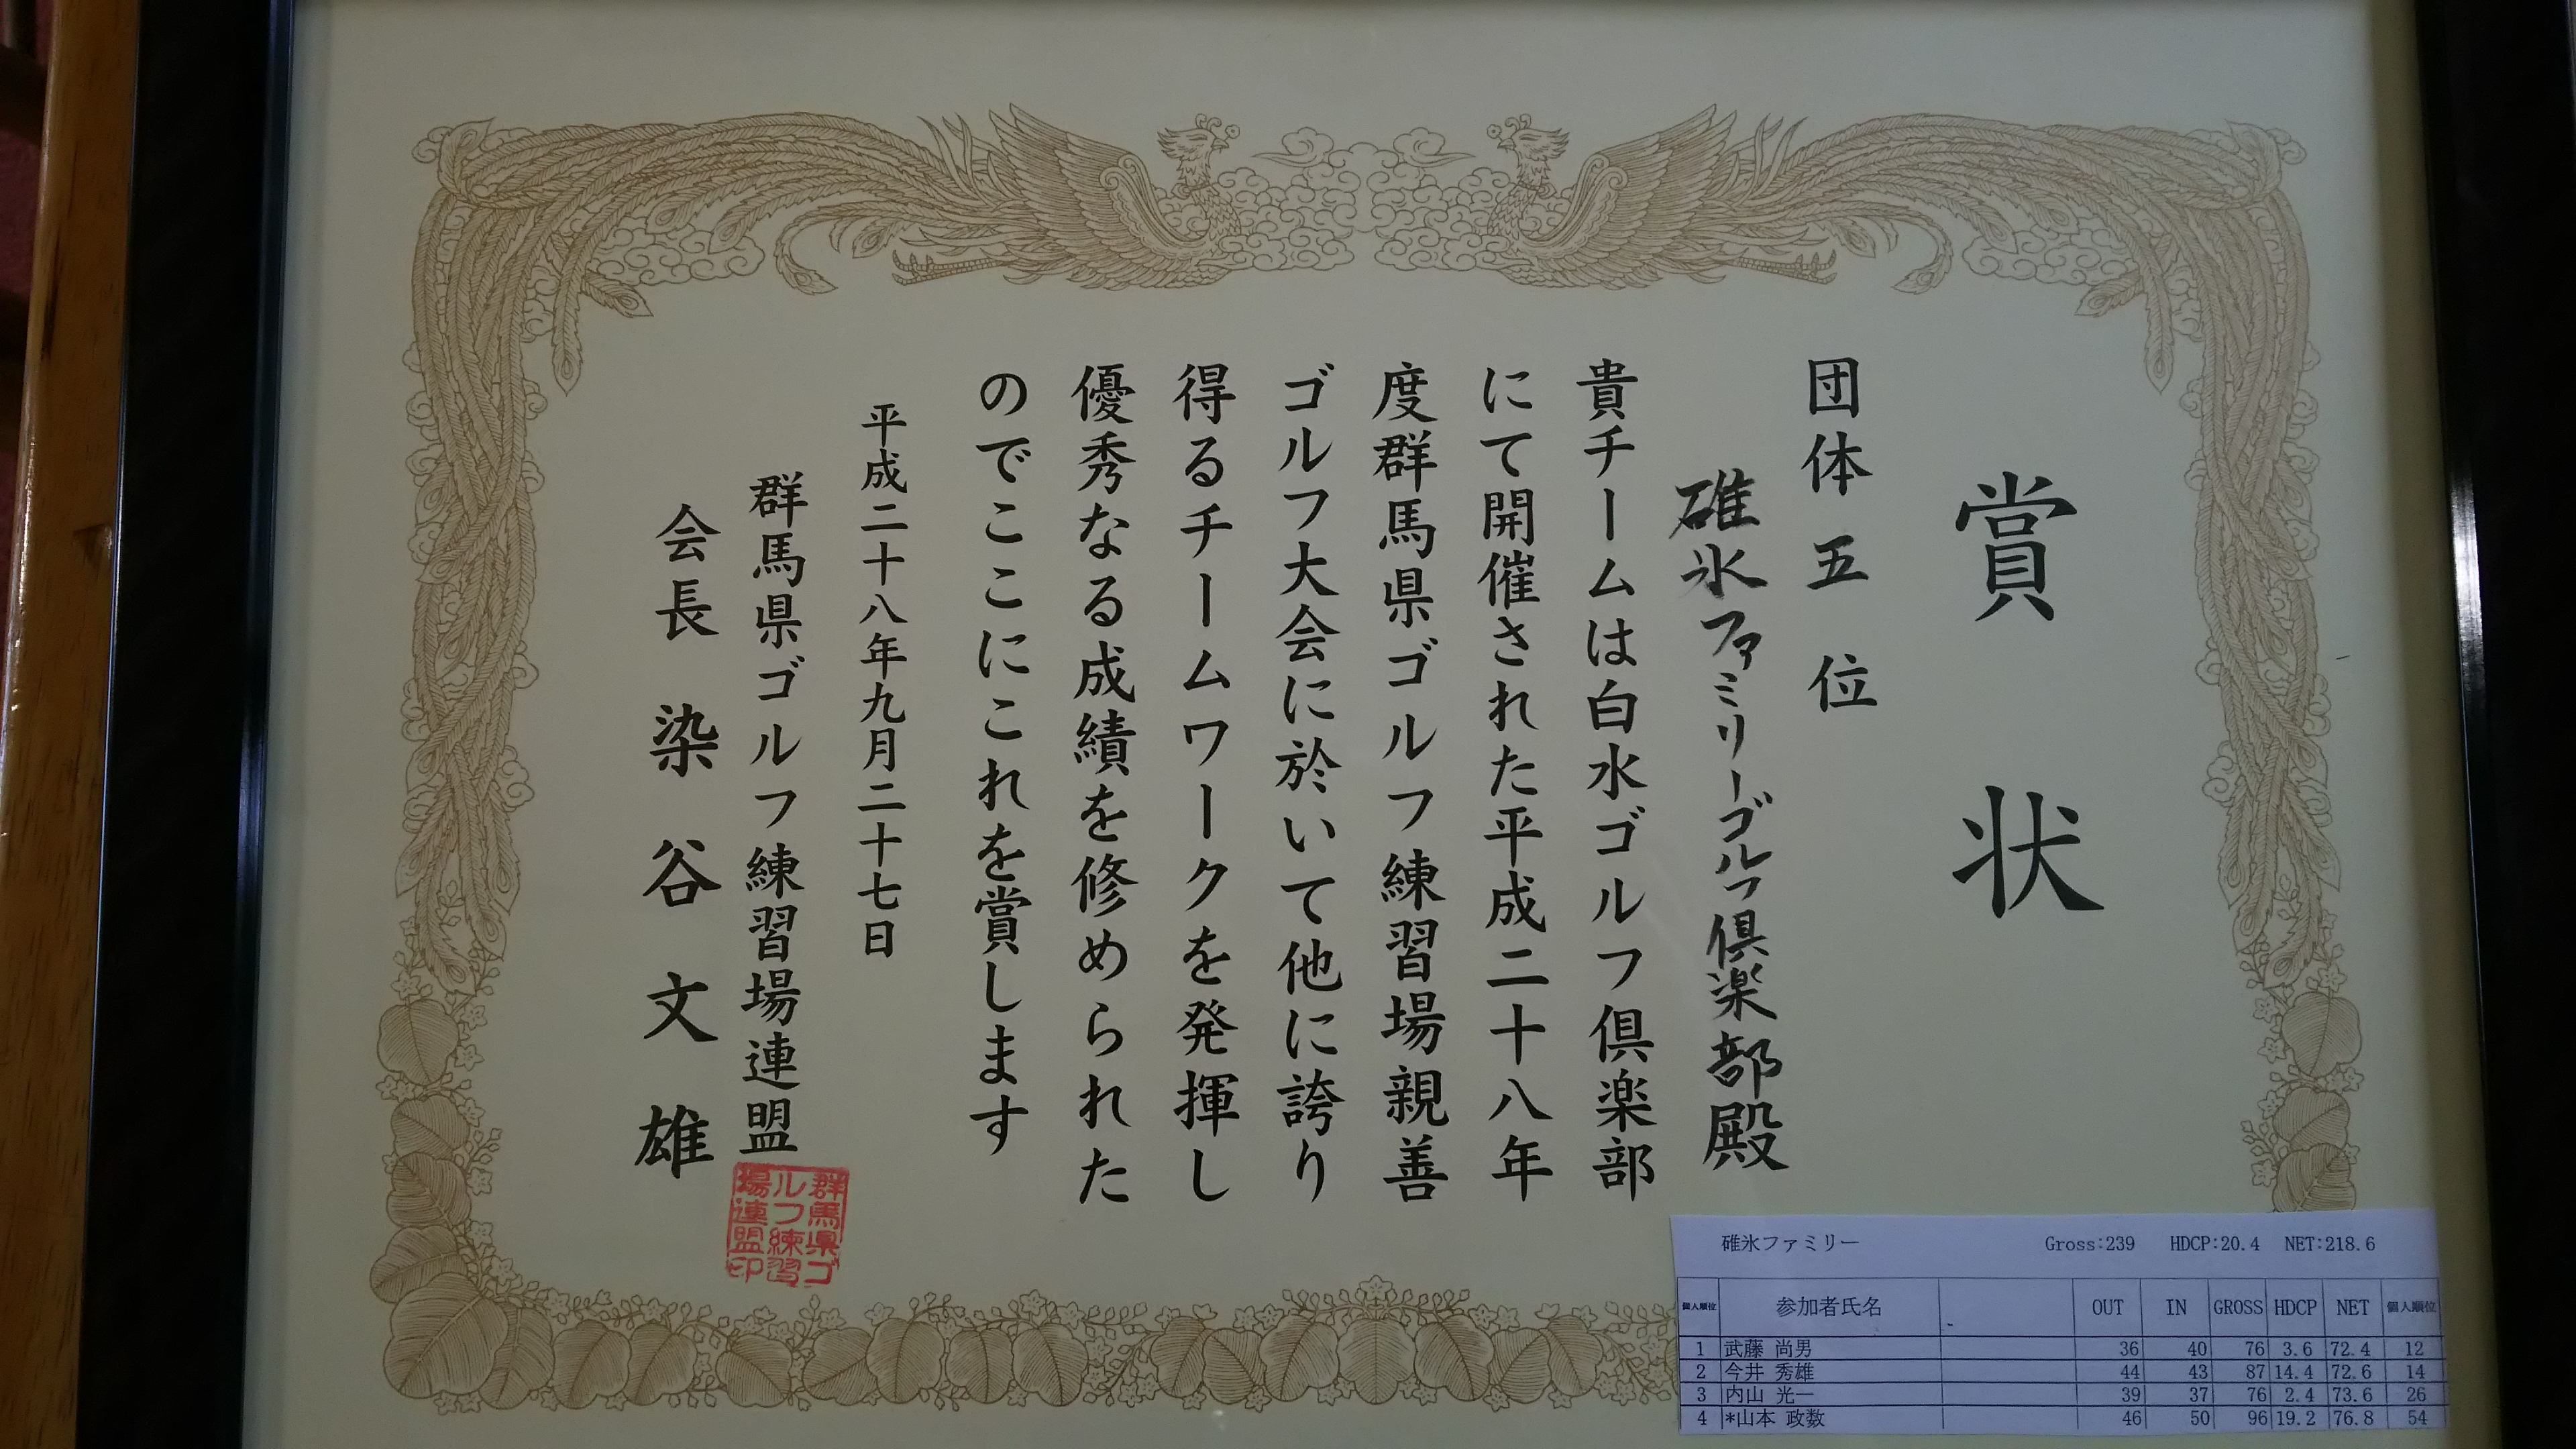 賞状
団体五位
碓氷ファミリーゴルフ倶楽部殿
貴チームは白水ゴルフ倶楽部
にて開催された平成二十八年
度群馬県ゴルフ練習場親善
ゴルフ大会に於いて他に誇り
得るチームワークを発揮し
優秀なる成績を修められた
のでここにこれを賞します
平成二十八年九月二十七日
群馬県ゴルフ練習場連盟
会長 染谷文雄
群馬県ゴ
ルフ練習
場連盟印
碓氷ファミリー Gross:239 HDCP:20.4 NET:218.6
個人順位 参加者氏名 OUT IN GROSS HDCP NET 個人順位
1 武藤 尚男 36 40 76 3.6 72.4 12
2 今井 秀雄 44 43 87 14.4 72.6 14
3 内山 光一 39 37 76 2.4 73.6 26
4 *山本 政数 46 50 96 19.2 76.8 54